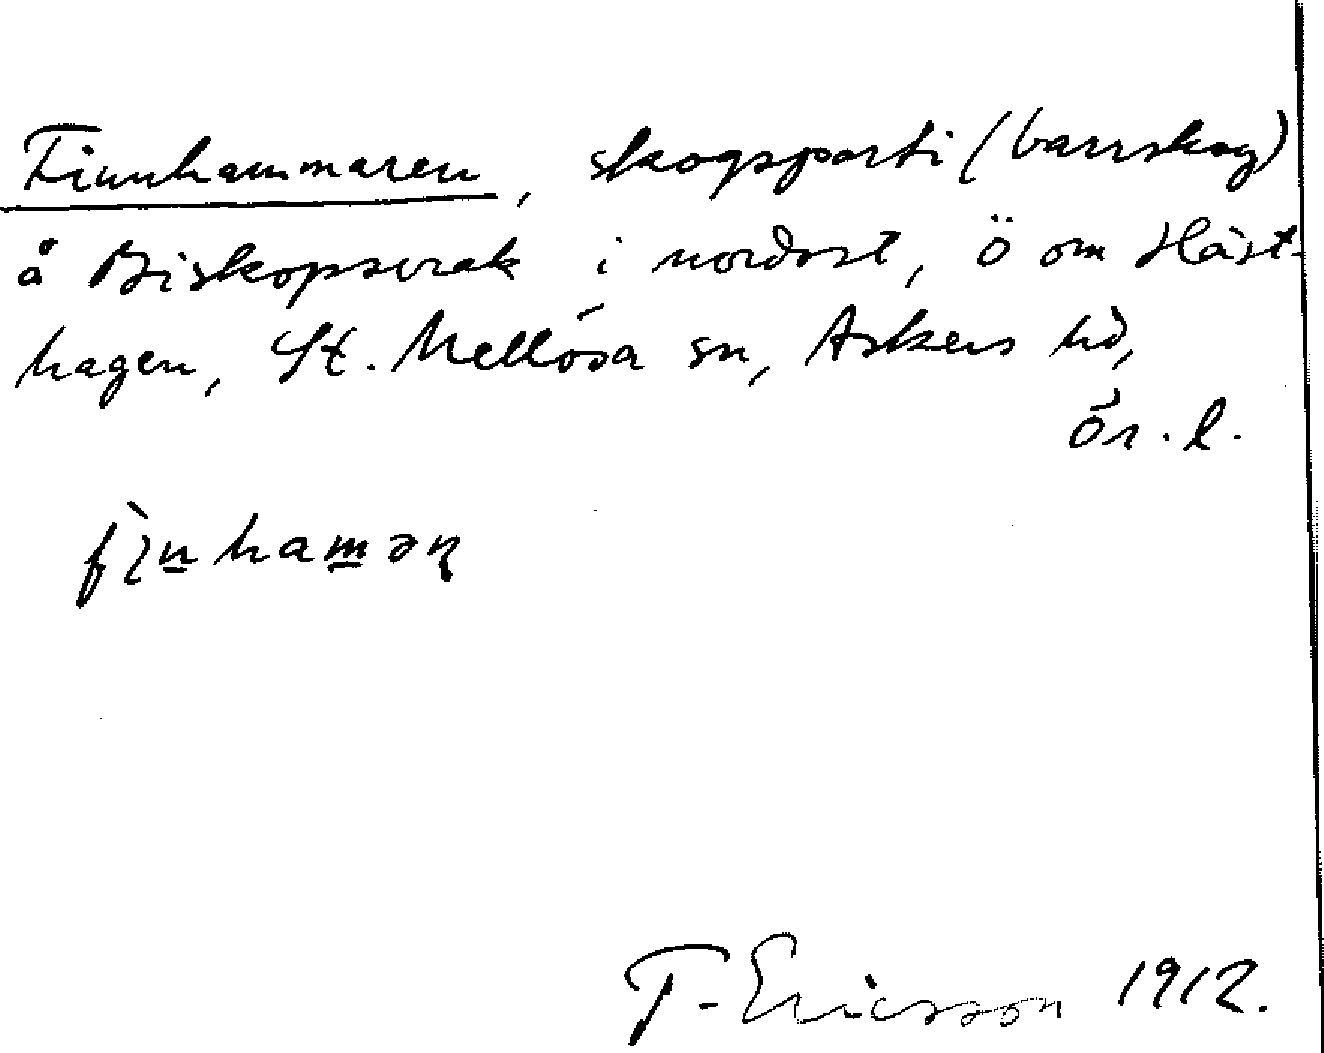 Finnhammaren, skogsparti (barrskog)
å Biskopsvrak i nordost, ö om Häst-
hagen, St. Mellösa sn, Askers hd,
Ör. l.
fìn̲ham̲əɳ
T. Ericsson 1912.